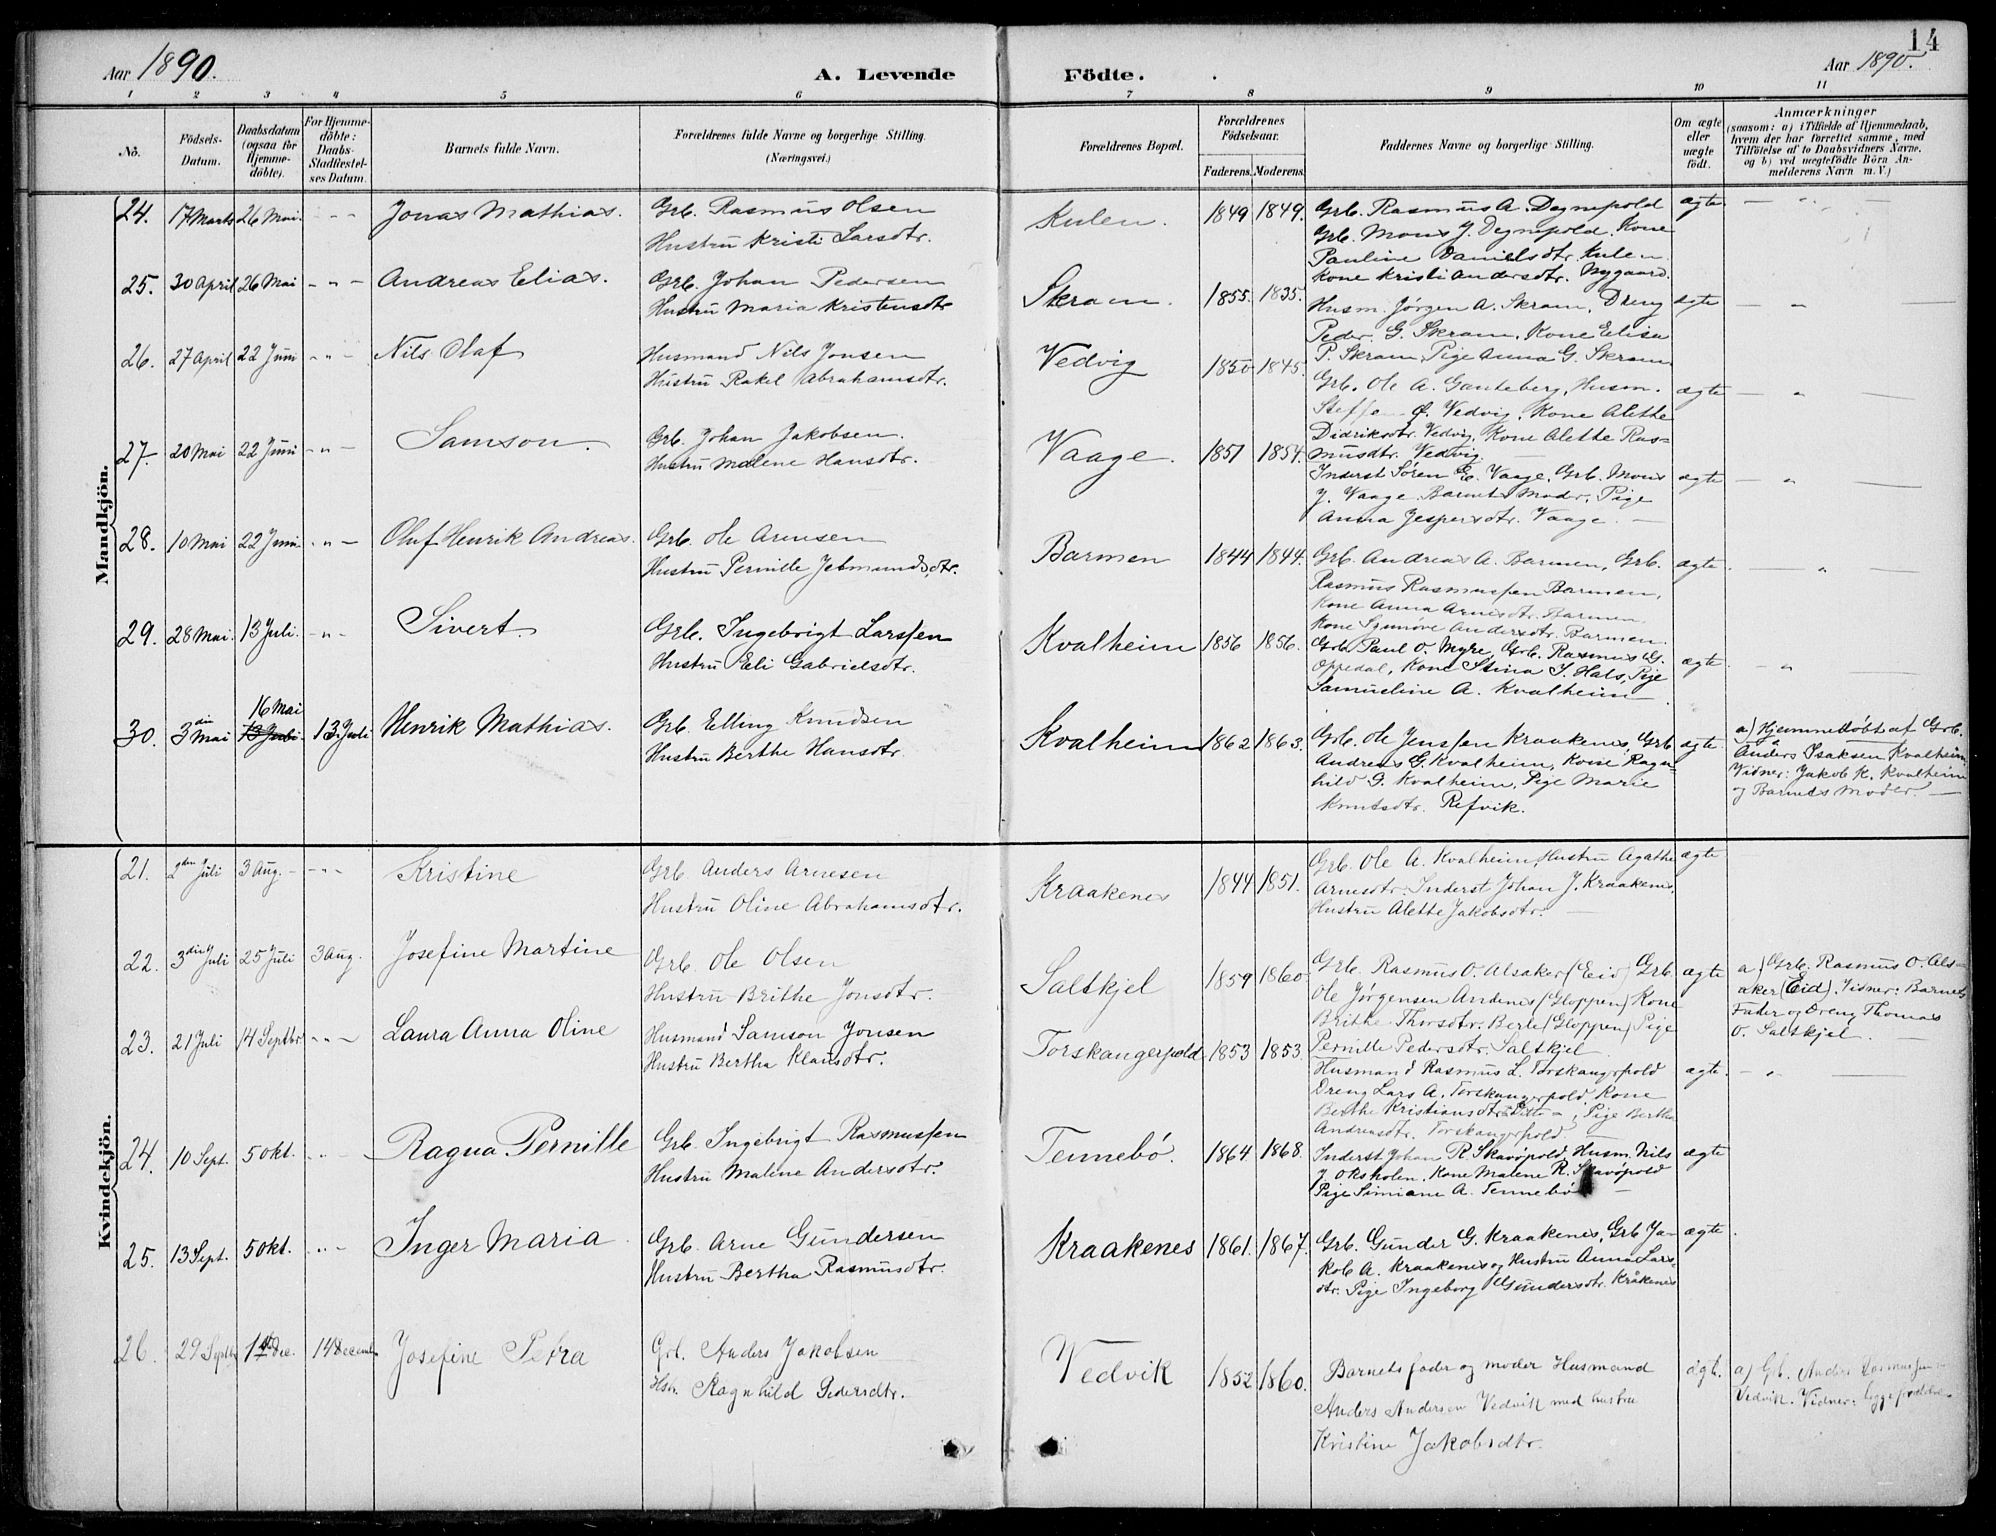 14
Aar 1890.
A. Levende
Födte.
Aar 1890.
1 2 3 4 5 6 7 8 9 10 11
No.
Födsels-
Datum.
Daabsdatum
(ogsaa for
Hjemme-
döbte).
For Hjemme-
döbte:
Daabs-
Stadfæstel-
ses Datum.
Barnets fulde Navn.
Forældrenes fulde Navne og borgerlige Stilling.
(Næringsvei.)
Forældrenes Bopæl.
Forældrenes
Födselsaar.
Faderens. Moderens.
Faddernes Navne og borgerlige Stilling.
Om ægte
eller
uægte
födt.
Anmærkninger
(saasom: a) i Tilfælde af Hjemmedaab,
hvem der har forrettet samme, med
Tilföielse af to Daabsvidners Navne.
og b) ved uægtefödte Börn An-
melderens Navn m. V.)
Mandkjön.
24. 17 Marts 26 Mai. - - Jonas Mathias.
Grb. Rasmus Olsen
Hustru Kristi Larsdtr.
Kulen. 1849 1849.
Grb. Rasmus A. Degnepold
Grb. Mons J. Degnepold, Kone
Pauline Danielsdtr. Kulen
Kone Kristi Andersdtr. Nygaard.
ægte - " -
25. 30 April 26 Mai - " - Andreas Elias.
Grb. Johan Pedersen
Hustru Maria Kristensdtr
Skram. 1855. 1835.
Husm. Jørgen A. Skram, Dreng
Peder G. Skram, Kone Elisa
P. Skram, Pige Anna G. Skram
ægte - " -
26. 27 April 22 Juni - " - Nils Olaf
Husmand Nils Jonsen
Hustru Rakel Abrahamsdtr.
Vedvig 1850 1845.
Grb. Ole A. Ganteberg, Husm.
Steffen Ø. Vedvig, Kone Alethe
Didriksdtr. Vedvig, Kone Alethe Ras-
musdtr. Vedvig
ægte - " -
27. 20 Mai 22 Juni - " - Samson.
Grb. Johan Jakobsen.
Hustru Malene Hansdtr.
Vaage. 1851 1854.
Inderst Søren E. Vaage, Grb. Mons
J. Vaage, Barnets Moder, Pige
Anna Jespersdtr. Vaage. -
ægte - " -
28. 10 Mai 22 Juni - " - Oluf Henrik Andreas.
Grb. Ole Arnesen
Hustru Pernille Jetmundsdtr.
Barmen 1844 1844.
Grb. Andreas A. Barmen, Grb.
Rasmus Rasmussen Barmen,
Kone Anna Arnesdtr. Barmen,
Kone Synnøve Andersdtr. Barmen.
ægte - " -
29. 28 Mai. 13 Juli. - " - Sivert.
Grb. Ingebrigt Larssen
Hustru Eli Gabrielsdtr.
Kvalheim 1856 1856.
Grb. Paul O. Myre, Grb. Rasmus G.
Oppedal, Kone Stina J. Hals, Pige
Samueline A. Kvalheim
ægte - "
30. 3 din Mai 16 Mai 13 Juli. 13. Juli Henrik Mathias.
Grb. Elling Knudsen
Hustru Berthe Hansdtr.
Kvalheim 1862 1863.
Grb. Ole Jenssen Kraakenes, Grb.
Andreas G. Kvalheim, Kone Ragn-
hild G. Kvalheim, Pige Marie
Knutsdtr. Refvik.
ægte
a) Hjemmedøbt af Grb.
Anders Isaksen Kvalheim.
Vidner: Jakob K. Kvalheim
og Barnets Moder. -
Kvindekjön.
21. 2den Juli 3 Aug. - - " - Kristine
Grb. Anders Arnesen
Hustru Oline Abrahamsdtr.
Kraakenes 1844 1851.
Grb. Ole A. Kvalheim, Hustru Agathe
Arnesdtr. Inderst Johan J. Kraakenes,
Hustru Alette Jakobsdtr. -
ægte
22. 3din Juli 25 Juli 3 Aug. Josefine Martine
Grb. Ole Olsen
Hustru Brithe Jonsdtr.
Saltkjel 1859 1860.
Grb. Rasmus O. Alsaker (Eid) Grb.
Ole Jørgensen Andenes (Gloppen) Kone
Brithe Thorsdtr. Berle (Gloppen) Pige
Pernille Pedersdtr. Saltkjel
ægte
a) Grb. Rasmus O. Als-
aker (Eid). Vidner: Barnets
Fader og Dreng Thomas
O. Saltskjel. -
23. 21 Juli 14 Septbr - " - Laura Anna Oline
Husmand Samson Jonsen
Hustru Bertha Klausdtr.
Torskangerpold 1853 1853.
Husmand Rasmus L. Torskangerpold
Dreng Lars A. Torskangerpold, Kone
Berthe Kristiansdtr. Ditto -, Pige Berthe
Andreasdtr. Torskangerpold. -
ægte. - " -
24. 10 Sept. 5 Okt. - " - Ragna Pernille
Grb. Ingebrigt Rasmussen
Hustru Malene Andersdtr.
Tennebø. 1864 1868.
Inderst Johan R. Skavøpold, Husm. Nils
J. Oksholen, Kone Malene R. Skavøpold
Pige Simiane A. Tennebø -
ægte
25. 13 Sept. 5 Okt. - " - Inger Maria
Grb. Arne Gundersen
Hustru Bertha Rasmusdtr.
Kraakenes 1861. 1867.
Grb. Gunder G. Kraakenes, Grb Ja-
kob A. Kraakenes og Hustru Anna Lars-
dtr. Pige Ingeborg Gundersdtr. Kråkenes
ægte.
26. 29 Septbr 1ste Dec. 14 Decemb Josefine Petra
Grb. Anders Jakobsen
Hstr. Ragnhild Pedersdtr.
Vedvik 1852 1860.
Barnets fader og moder Husmand
Anders Andersen Vedvik med hustru
Kristine Jakobsdtr.
ægt.
a) Gb. Anders Rasmussen
Vedvik. Vidner: begge forældre.